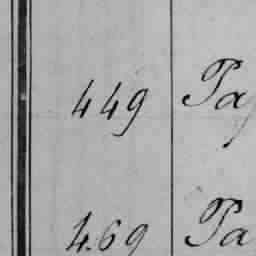 449 Pa
469 Pa